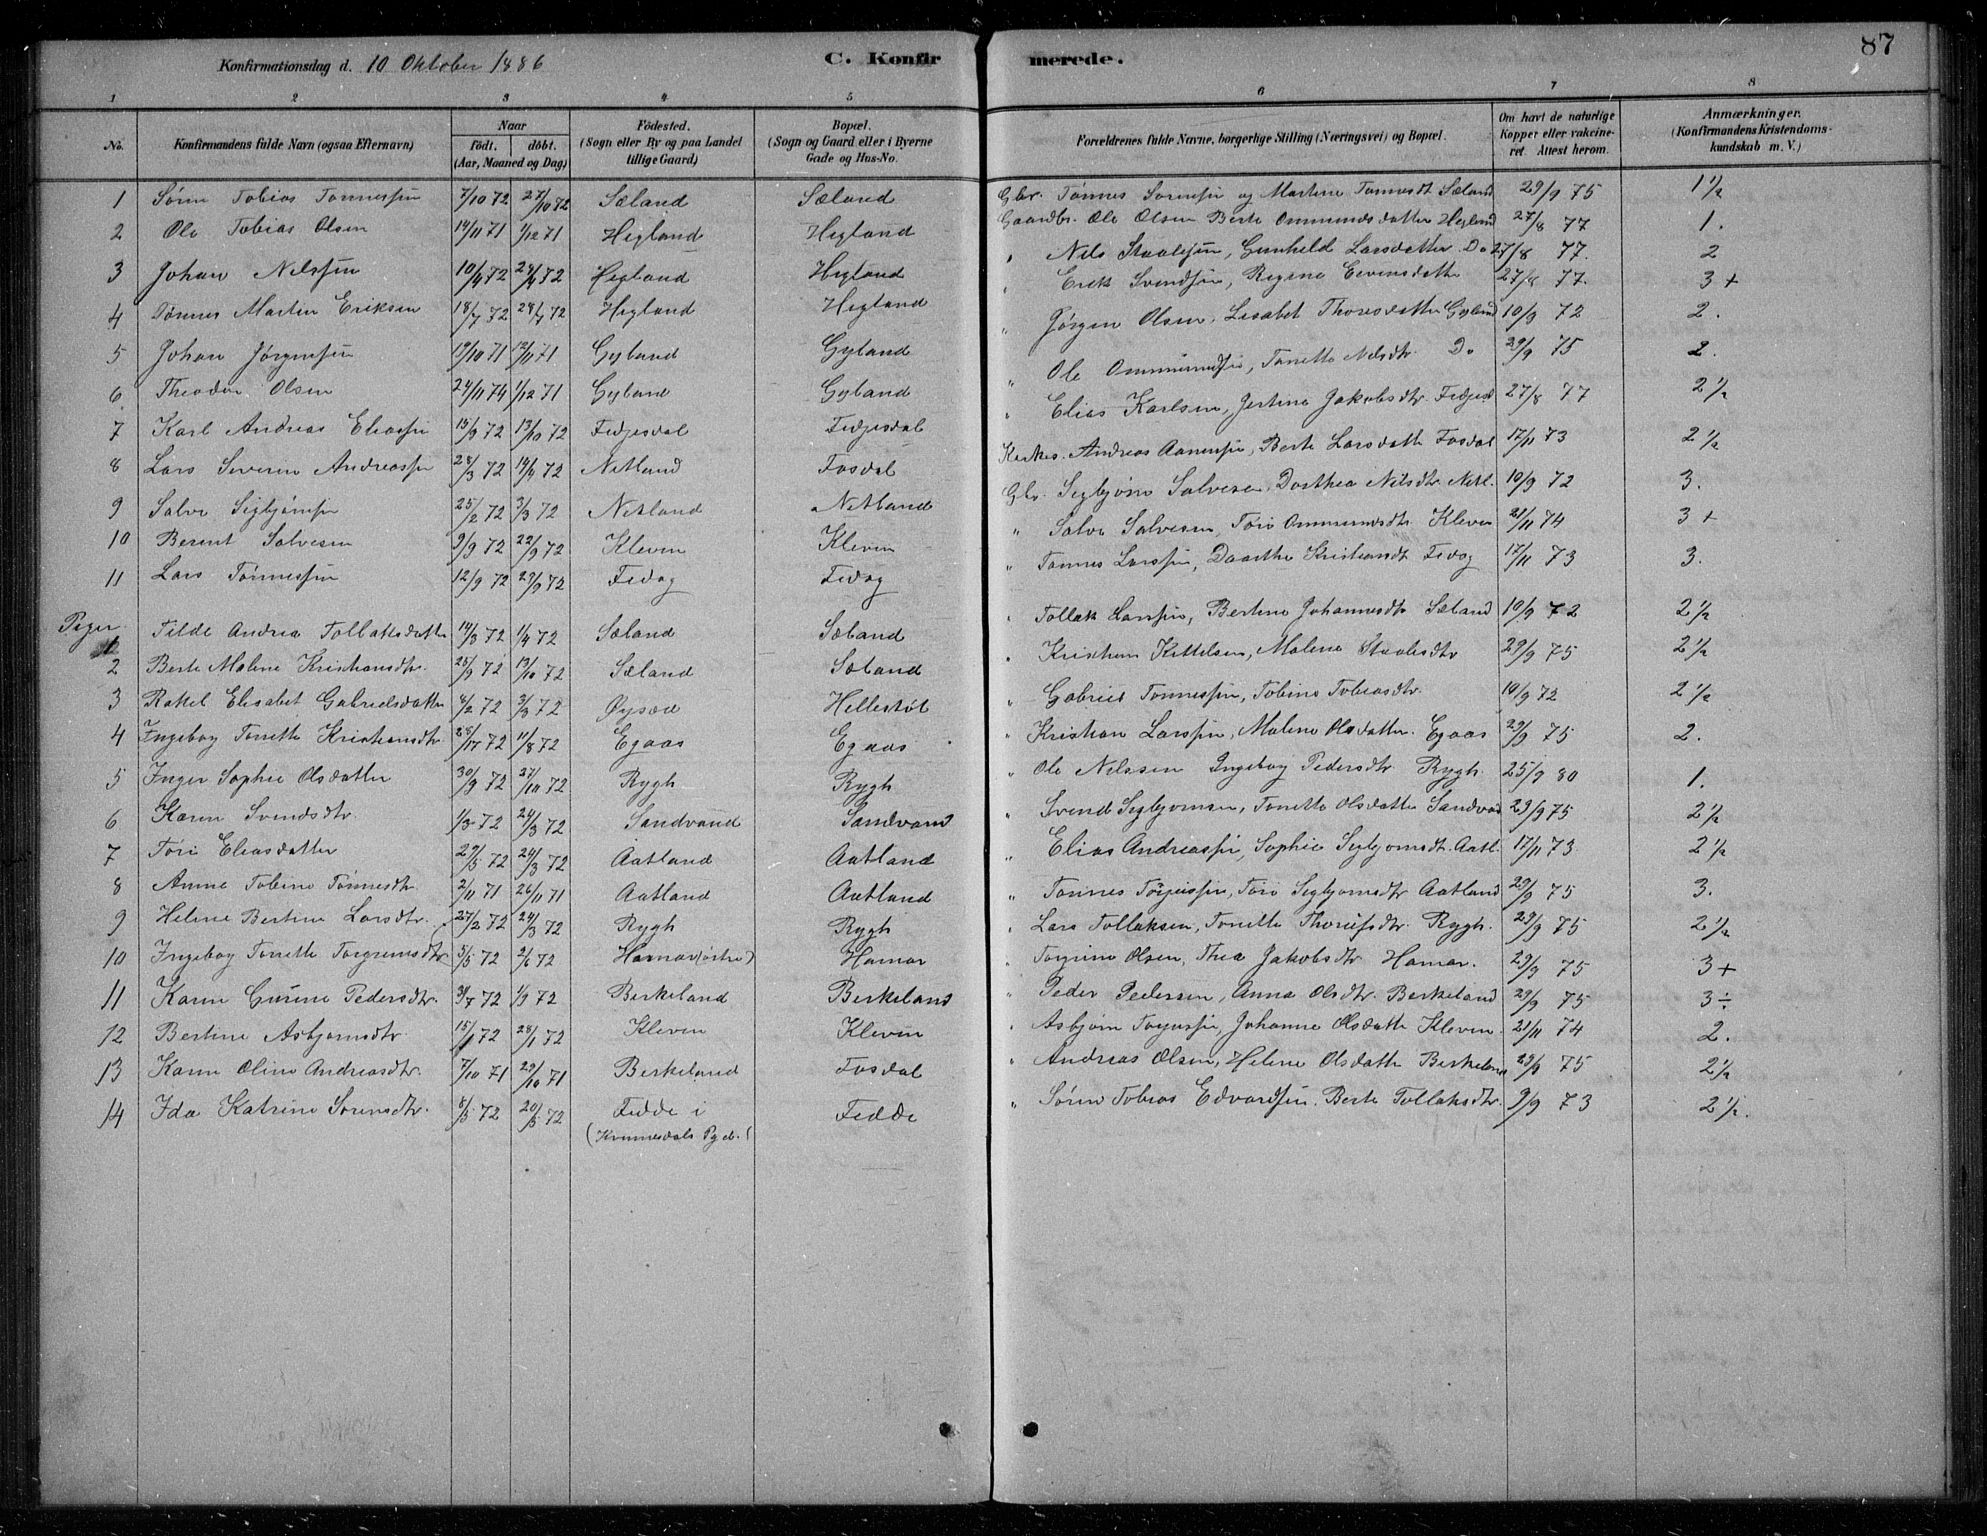 87
Konfirmationsdag d. 10 Oktober 1886 C. Konfirmerede.
1 2 3 4 5 6 7 8
No. Konfirmandens fulde Navn (ogsaa Efternavn) Naar Födt. döbt. (Aar, Maaned og Dag) Födested. (Sogn eller By og paa Landet tillige Gaard) Bopæl. (Sogn og Gaard eller i Byerne Gade og Hus-No. Forældrenes fulde Navne, borgerlige Stilling (Næringsvei) og Bopæl. Om havt de naturlige Kopper eller vakcineret. Attest herom. Anmærkninger. (Konfirmandens Kristendomskundskab m. V.)
1 Sörne Tobias Tönnessen 7/10 72 27/10 72 Sæland Sæland Gbr. Tönnes Sörensen og Martine Tönnesdt Sæland 29/9 75 1 1/2
2 Ole Tobias Olsen 14/11 71 1/12 71 Hegland Hegland Gaardbr. Ole Olsen Berte Ommundsdatter Hegland 27/8 77 1.
3 Johan Nilssen 10/4 72 24/4 72 Hegland Hegland " Nils Staalesen, Gunhild Larsdatter Do 27/8 77. 2
4 Tönnes Martin Eriksen 18/7 72 28/7 72 Hegland Hegland " Erik Svendsen, Regina Eivensdatte 27/8 77. 3 +
5 Johan Jörgensen 19/10 71 12/11 71 Gyland Gyland " Jörgen Olsen, Lisabet Thoresdatter Gyland 10/9 72 2.
6 Theodor Olsen 24/11 74 1/12 71 Gyland Gyland " Ole Ommundsen, Tonette Nilsdtr. Do 29/9 75 2.
7 Karl Andreas Eliassen 15/9 72 13/10 72 Fedjesdal Fedjesdal " Elias Karlsen, Jertine Jakobsdtr. Fedjesd 27/8 77 2 1/2
8 Lars Severin Andreassen 28/3 72 14/4 72 Netland Fosdal Kirkes. Andreas Aanensen, Berte Larsdatte Fosdal 17/11 73 2 1/2
9 Salve Sigbjörnsen 25/2 72 3/3 72 Netland Netland Gbr. Sigbjörn Salvesen, Dorthea Nilsdtr Netl. 10/9 72 3.
10 Berent Salvesen 9/9 72 22/9 72 Kleven Kleven " Salve Salvesen, Tori Ommundsdtr. Kleven 21/11 74 3 +
11 Lars Tönnessen 12/9 72 29/9 72 Fedog Fedog " Tönnes Larssen, Daarthe Kristiansdt Fedog 17/11 73 3.
Piger.
1 Tilde Andrea Tollaksdatter 14/3 72 1/4 72 Sæland Sæland " Tollak Larssen, Bertine Johannesdtr Sæland 10/9 72 2 1/2
2 Berte Malene Kristiansdtr. 25/9 72 13/10 72 Sæland Sæland " Kristian Kittelsen, Malene Staalesdtr 29/9 75 2 1/2
3 Rakel Elisabet Gabrielsdatter 4/2 72 3/3 72 Öysæd Hellestöl " Gabriel Tönnessen, Tobine Tobiasdtr. 10/9 72 2 1/2
4 Ingeborg Tonette Kristiansdtr. 72 11/8 72 Egaas Egaas " Kristian Larssen, Malene Olsdatter. Egaas 29/9 75 2.
5 Inger Sophie Olsdatter 30/9 72 27/10 72 Rygh Rygh " Ole Nilssen Ingeborg Pedersdtr Rygh 25/9 80 1.
6 Karen Svendsdtr. 1/3 72 24/3 72 Sandvand Sandvand " Svend Sigbjörnsen, Tonette Olsdatter Sandvad 29/9 75 2 1/2
7 Tori Eliasdatter 72 24/3 72 Aatland Aatland " Elias Andreassen, Sophie Sigbjörnsdt. Aatl. 17/11 73 2 1/2
8 Anne Tobine Tönnesdtr. 2/11 71 26/11 71 Aatland Aatland " Tönnes Torjussen, Tori Sigbjörnsdtr Aatland 29/9 75 3.
9 Helene Bertine Larsdtr. 27/2 72 24/3 72 Rygh Rygh " Lars Tollaksen, Tonette Thorufsdtr. Rygh. 29/9 75 2 1/2
10 Ingeborg Tonette Torgrimsdtr 3/5 72 2/6 72 Hamar (östre) Hamar " Torgrim Olsen, Thea Jakobsdtr Hamar. 29/9 75 3 +
11 Karen Gurine Pedersdtr. 31/7 72 1/9 72 Berkeland Berkeland " Peder Pedersen, Anna Olsdtr. Berkeland 29/9 75 3 ÷
12 Bertine Asbjörnsdtr. 15/1 72 28/1 72 Kleven Kleven " Asbjörn Torjussen, Johanne Olsdatte Kleven. 21/11 74 2.
13 Karen Oline Andreasdtr. 7/10 71 29/10 71 Berkeland Fosdal " Andreas Olsen, Helene Olsdatte Berkeland 29/9 75 2 1/2
14 Ida Katrine Sörensdtr. 8/5 72 20/5 72 Fedde i Fedde " Sören Tobias Edvardsen. Berte Tollaksdtr. 9/9 73 2 1/2.
(Kvinnesdals Pgd.)